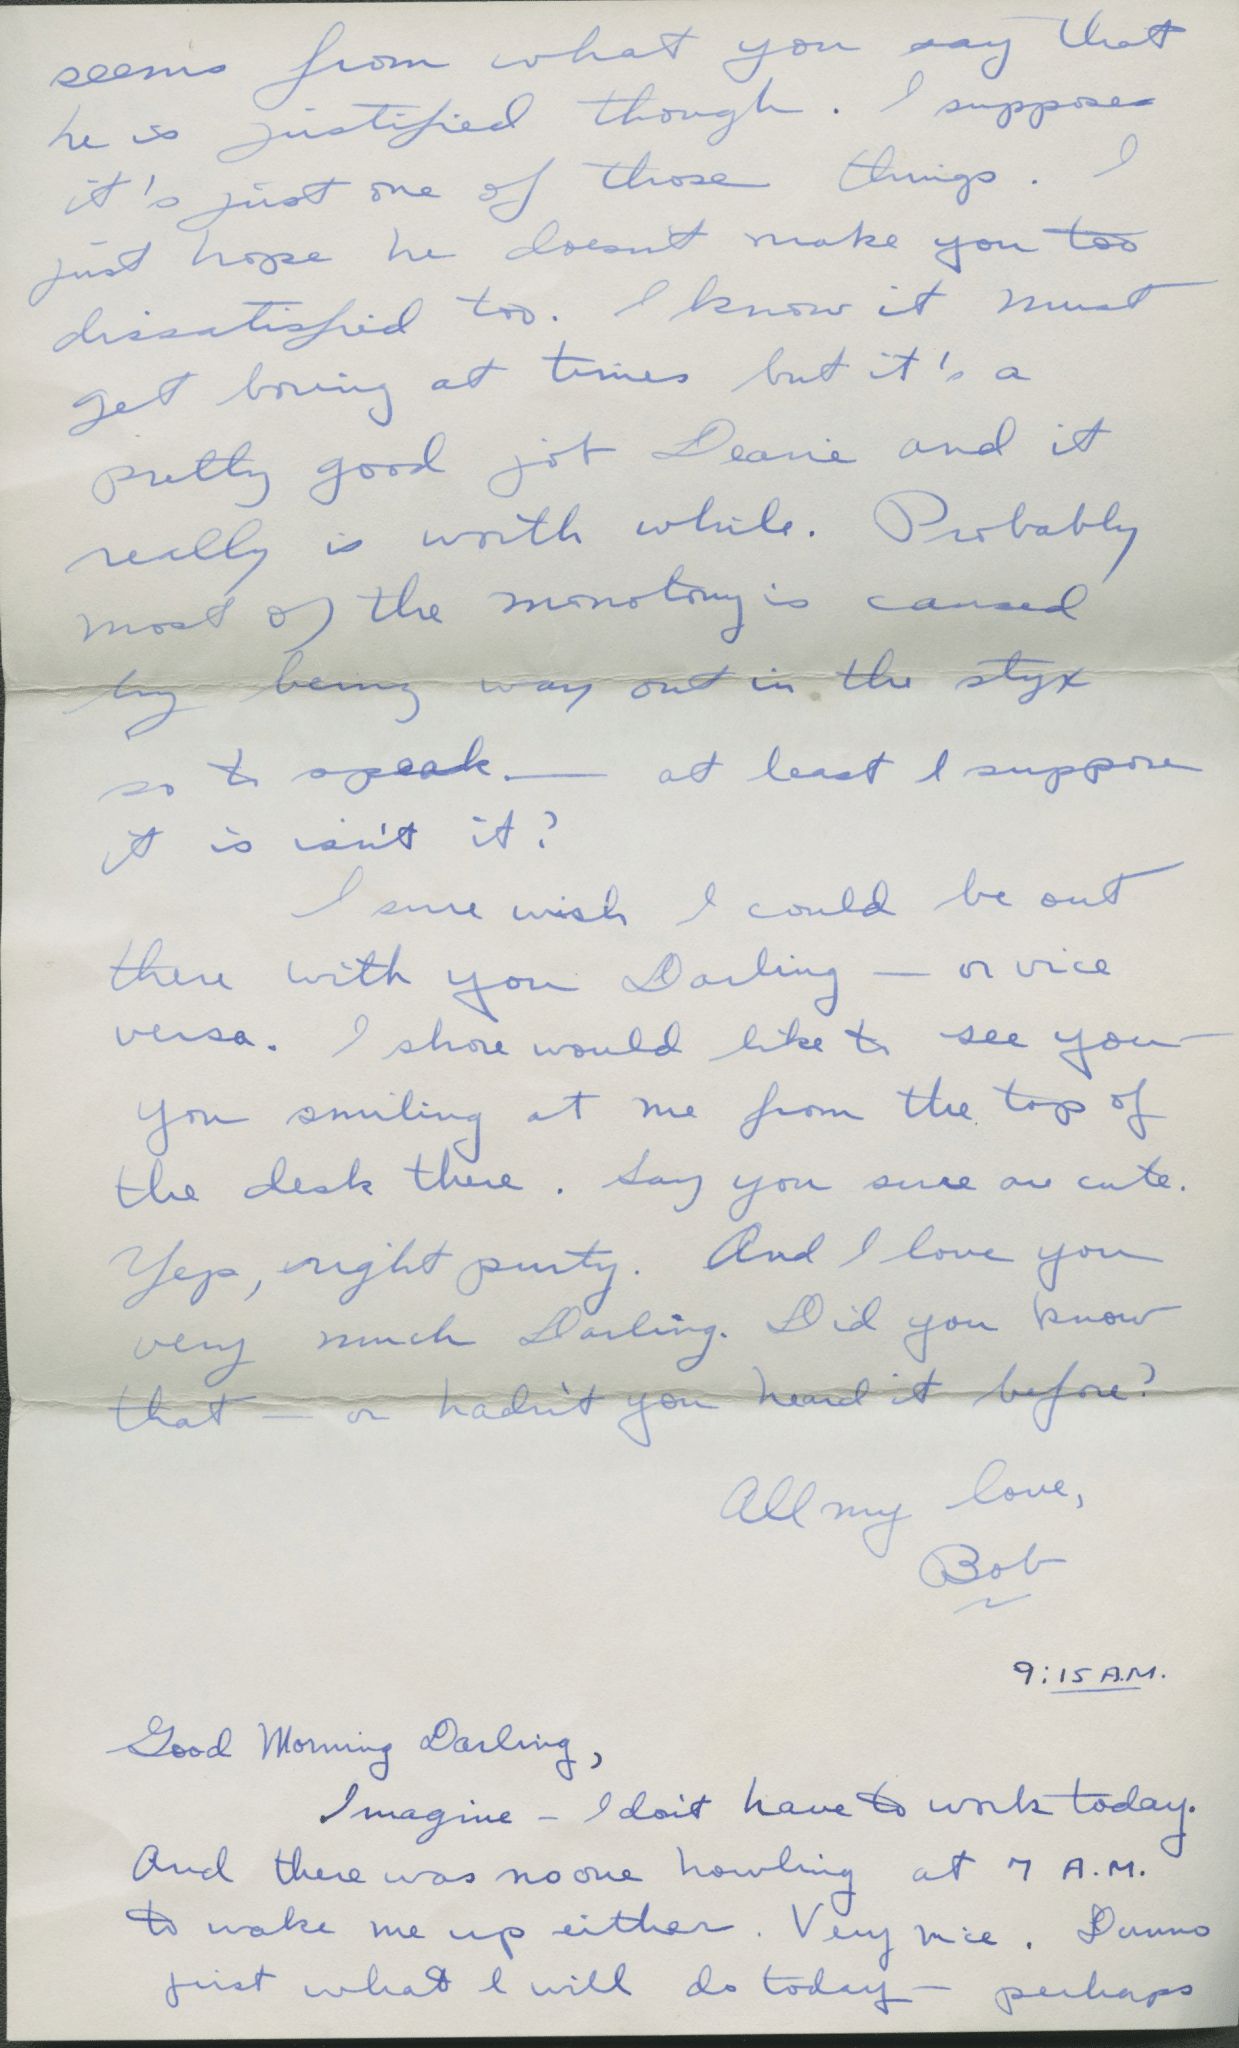 seems from what you say that
he is justified though. I suppose
it's just one of those things. I
just hope he doesn't make you too
dissatisfied too. I know it must
get boring at times but it's a
pretty good job Dearie and it
really is worth while. Probably
most of the monotony is caused
by being way out in the styx
so to speak. — at least I suppose
it is isn't it?
I sure wish I could be out
there with you Darling — or vice
versa. I shore would like to see you
you smiling at me from the top of
the desk there. Say you sure are cute.
Yep, right purty. And I love you
very much Darling. Did you know
that — or hadn't you heard it before?
All my love,
Bob
9:15 A.M.
Good Morning Darling,
Imagine – I don't have to work today.
And there was no one howling at 7 A.M.
to wake me up either. Very nice. Dunno
just what I will do today – perhaps